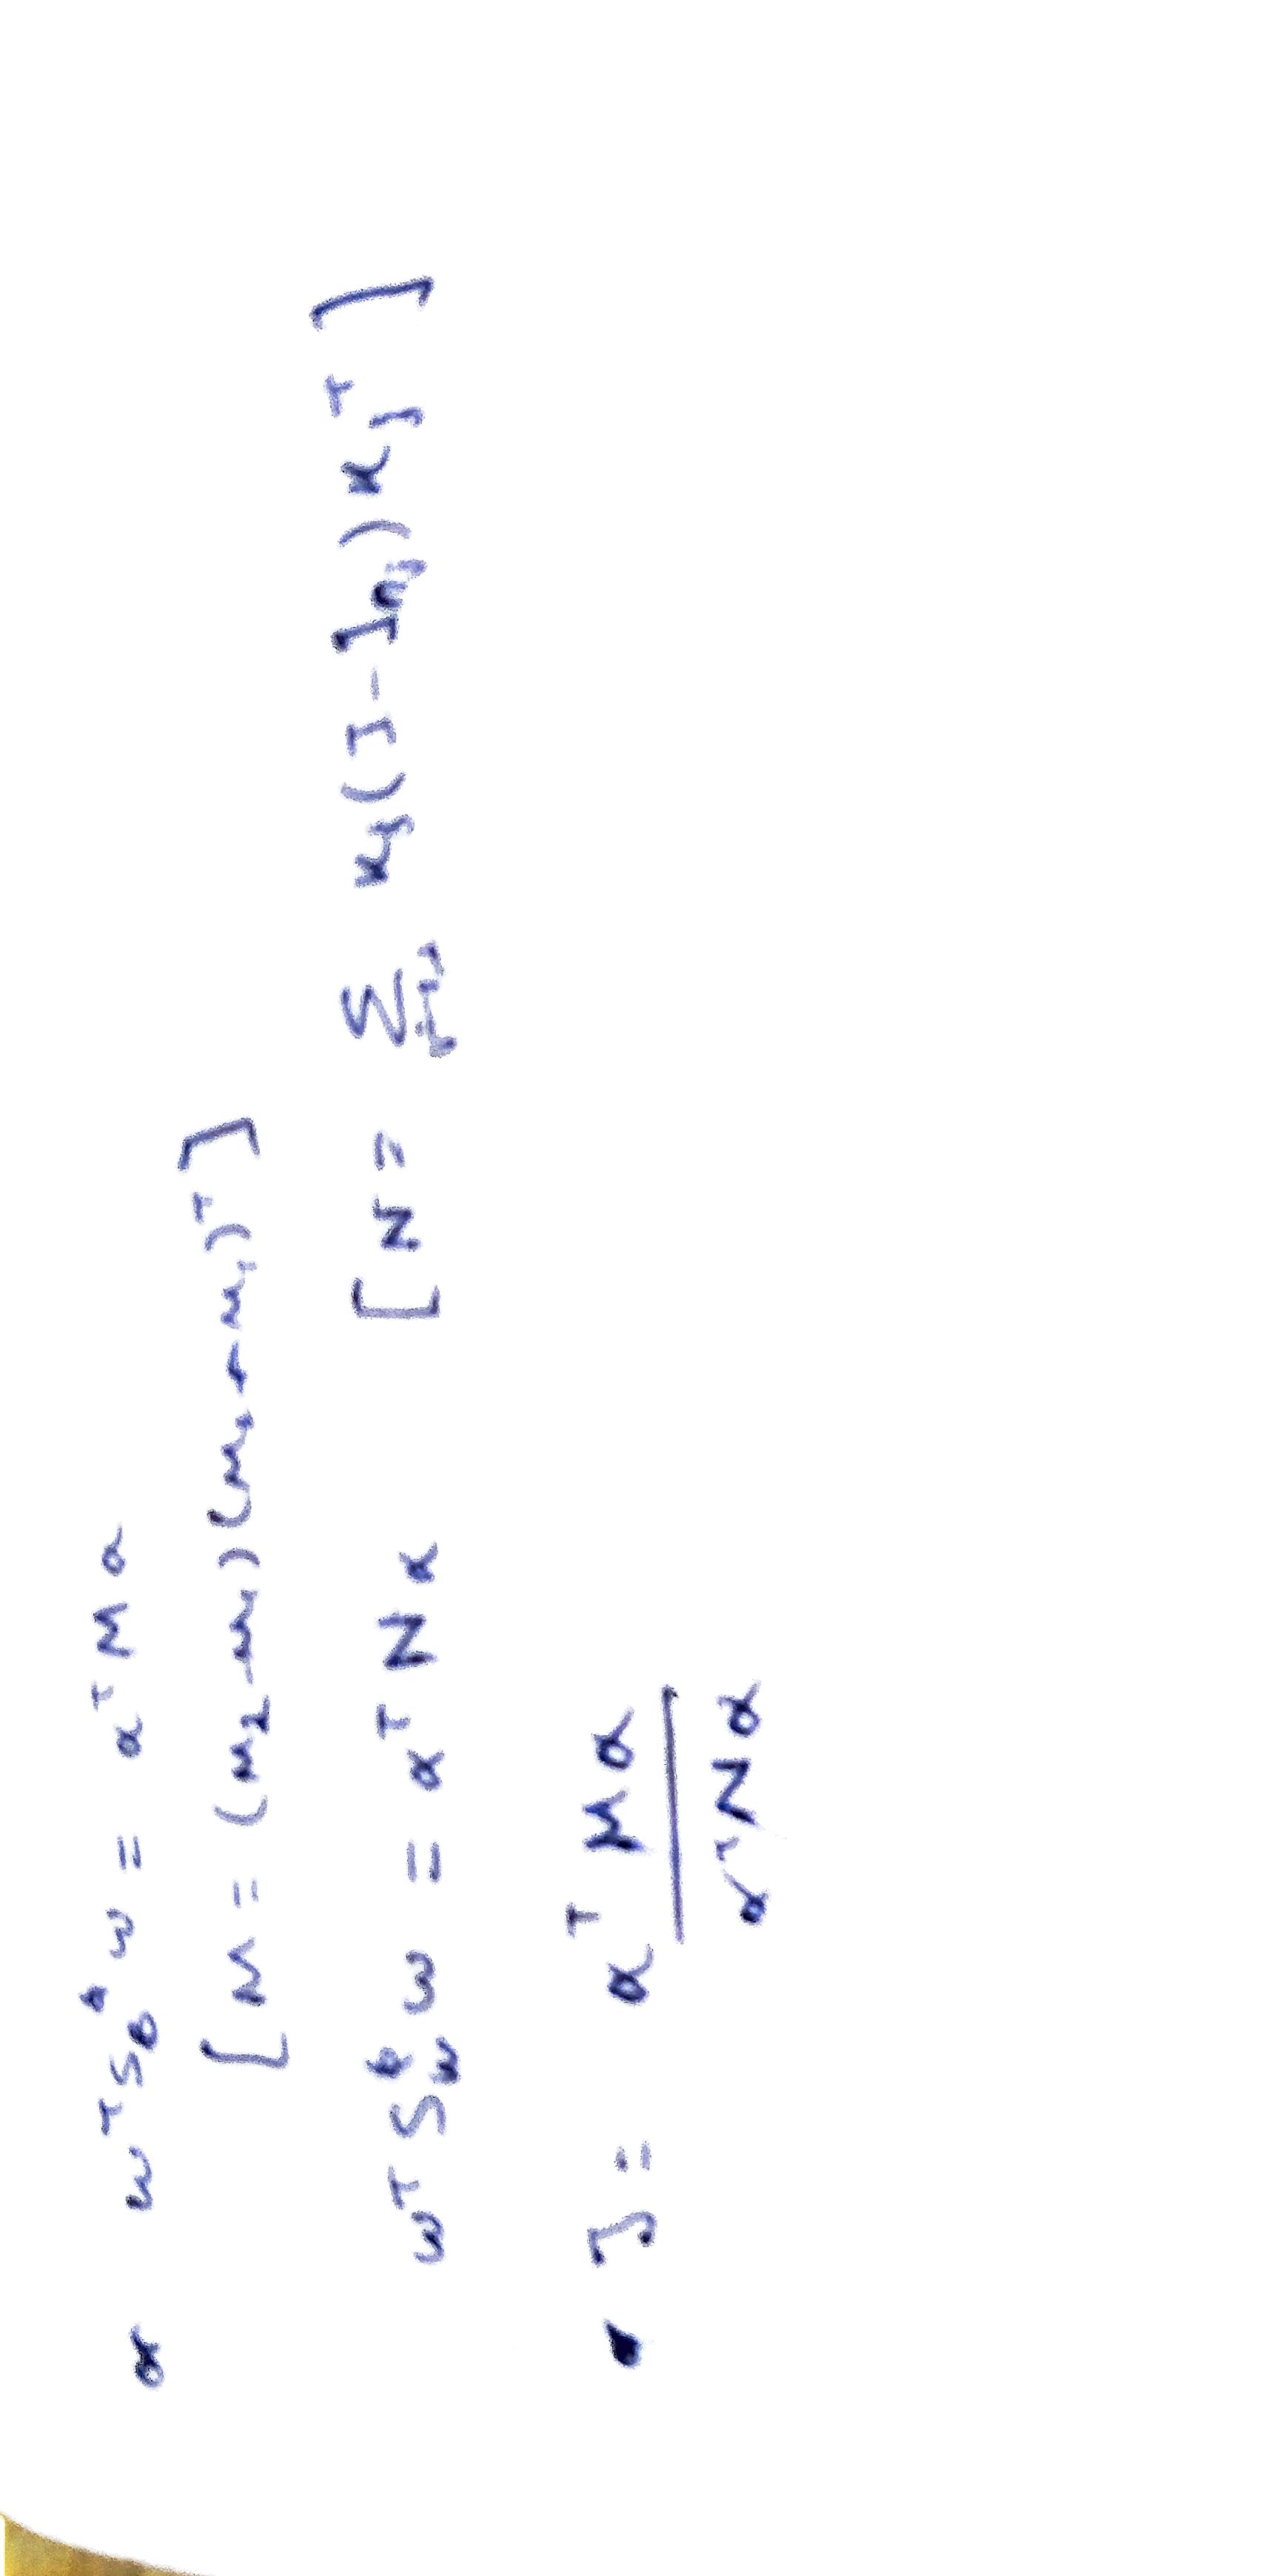 α wᵀS_B^ϕ w = αᵀMα
[M = (m₂-m₁)(m₂-m₁)ᵀ]
wᵀS_w^ϕ w = αᵀNα [N = Σ_{j=1,2} K_j(I-I_{n_j})K_jᵀ]
• J = αᵀMα / αᵀNα